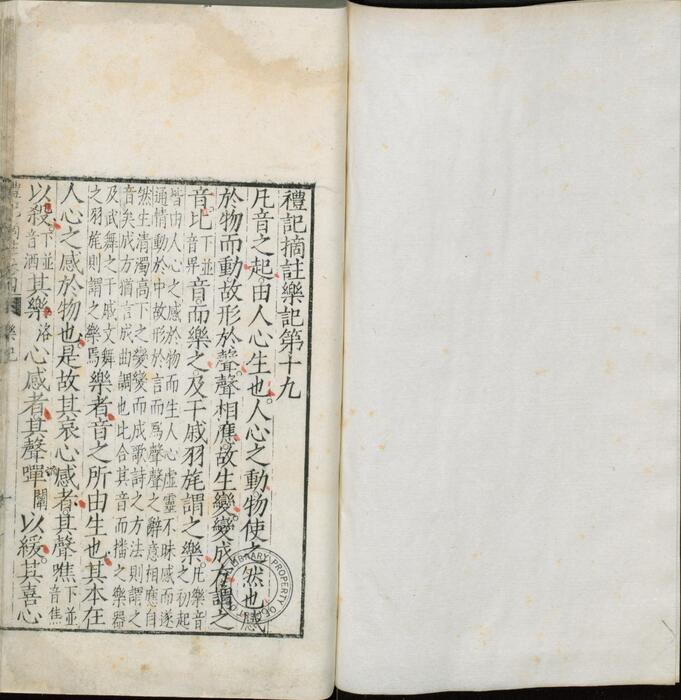 禮記摘註樂記第十九
凡音之起由人心生也人心之動物使之然也感
於物而動故形於聲聲相應故生變變成方謂之
音比下並音界音而樂之及干戚羽旄謂之樂凡樂音之初起
皆由人心之感於物而生人心虛靈不昧感而遂
通情動於中故形於言而爲聲聲之辭意相應自
然生清濁高下之變變而成歌詩之方法則謂之
音矣成方猶言成曲調也比合其音而播之樂器
及武舞之干戚文舞
之羽旄則謂之樂焉樂者音之所由生也其本在
人心之感於物也是故其哀心感者其聲噍下並音焦
以殺下並音洒其樂洛心感者其聲嘽闡以緩其喜心
樂記
LIBRARY PROPERTY